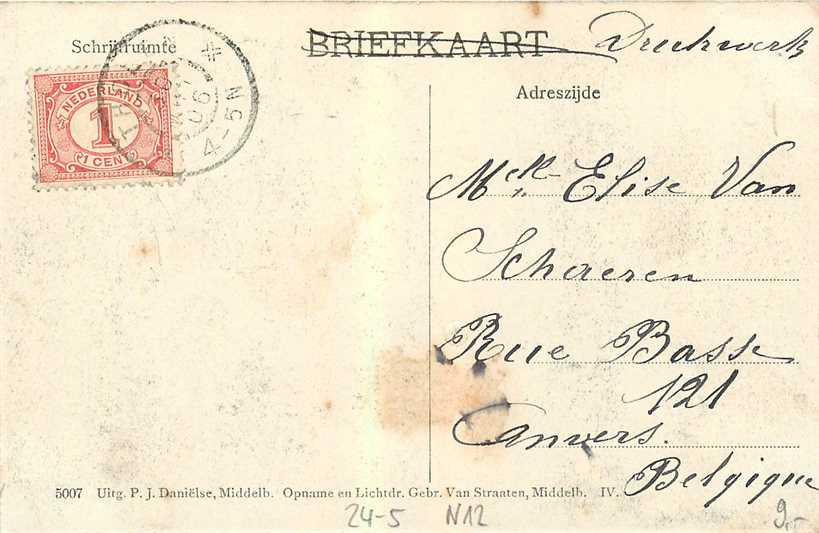 Schrijfruimte
BRIEFKAART Drukwerk
Adreszijde
NEDERLAND
1
1 CENT
06
4-5N
Melle Elise Van
Schaeren
Rue Basse
121
Anvers.
Belgique
5007 Uitg. P. J. Daniëlse, Middelb. Opname en Lichtdr. Gebr. Van Straaten, Middelb. IV.
24-5 N12
9,-